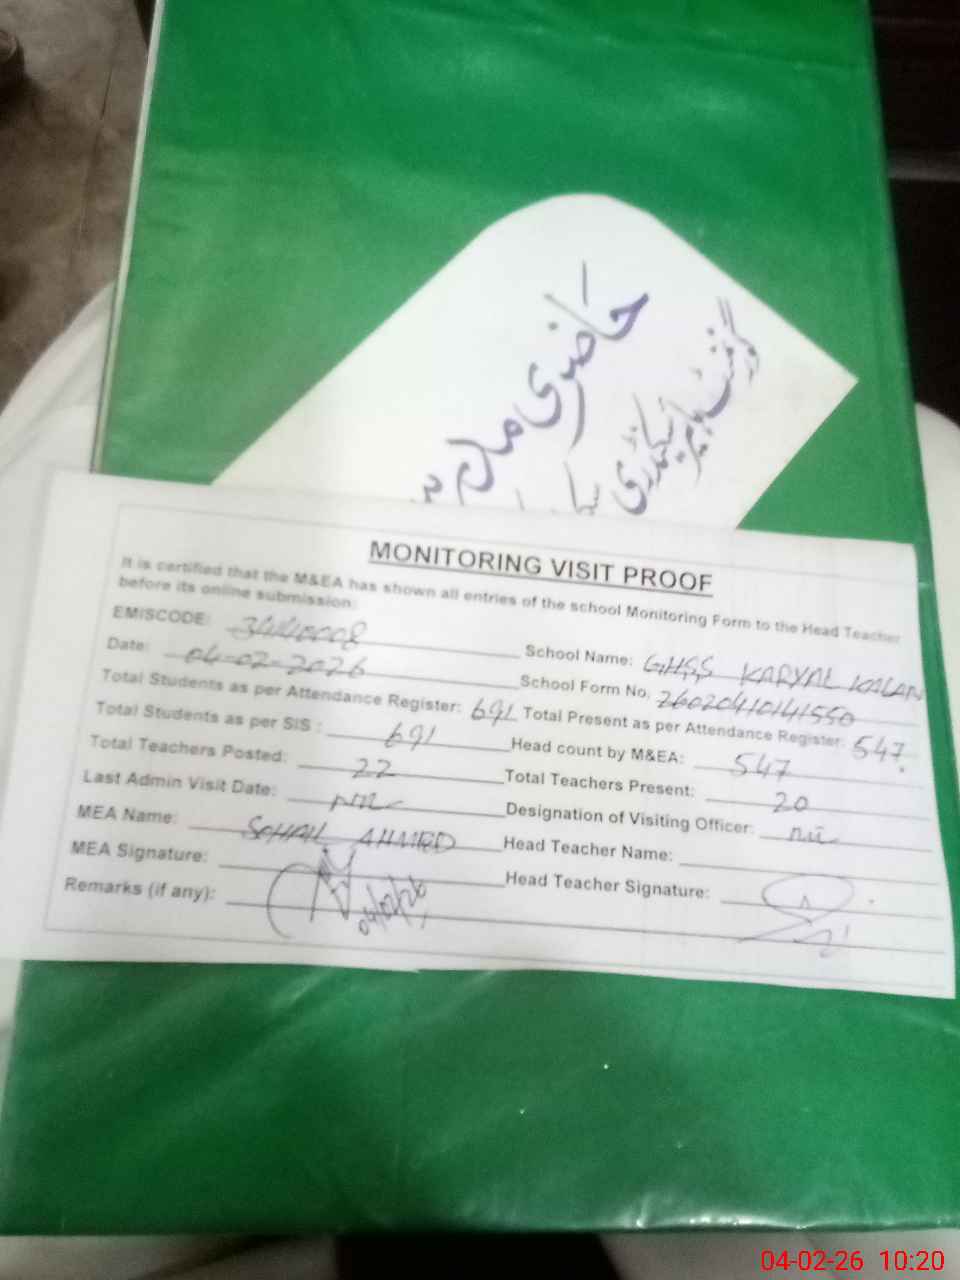 حاضری
گورنمنٹ ہائیر سیکنڈری
MONITORING VISIT PROOF
It is certified that the M&EA has shown all entries of the school Monitoring Form to the Head Teacher
before its online submission:
EMISCODE: School Name: GHSS KARYAL KALAN
Date: 04-02-2026 School Form No. 26020410141550
Total Students as per Attendance Register: 691 Total Present as per Attendance Register: 547
Total Students as per SIS : 691 Head count by M&EA: 547
Total Teachers Posted: 22 Total Teachers Present: 20
Last Admin Visit Date: Nil Designation of Visiting Officer: Nil
MEA Name: SOHAIL AHMED Head Teacher Name:
MEA Signature: Head Teacher Signature:
Remarks (if any): 04/02/26
04-02-26 10:20